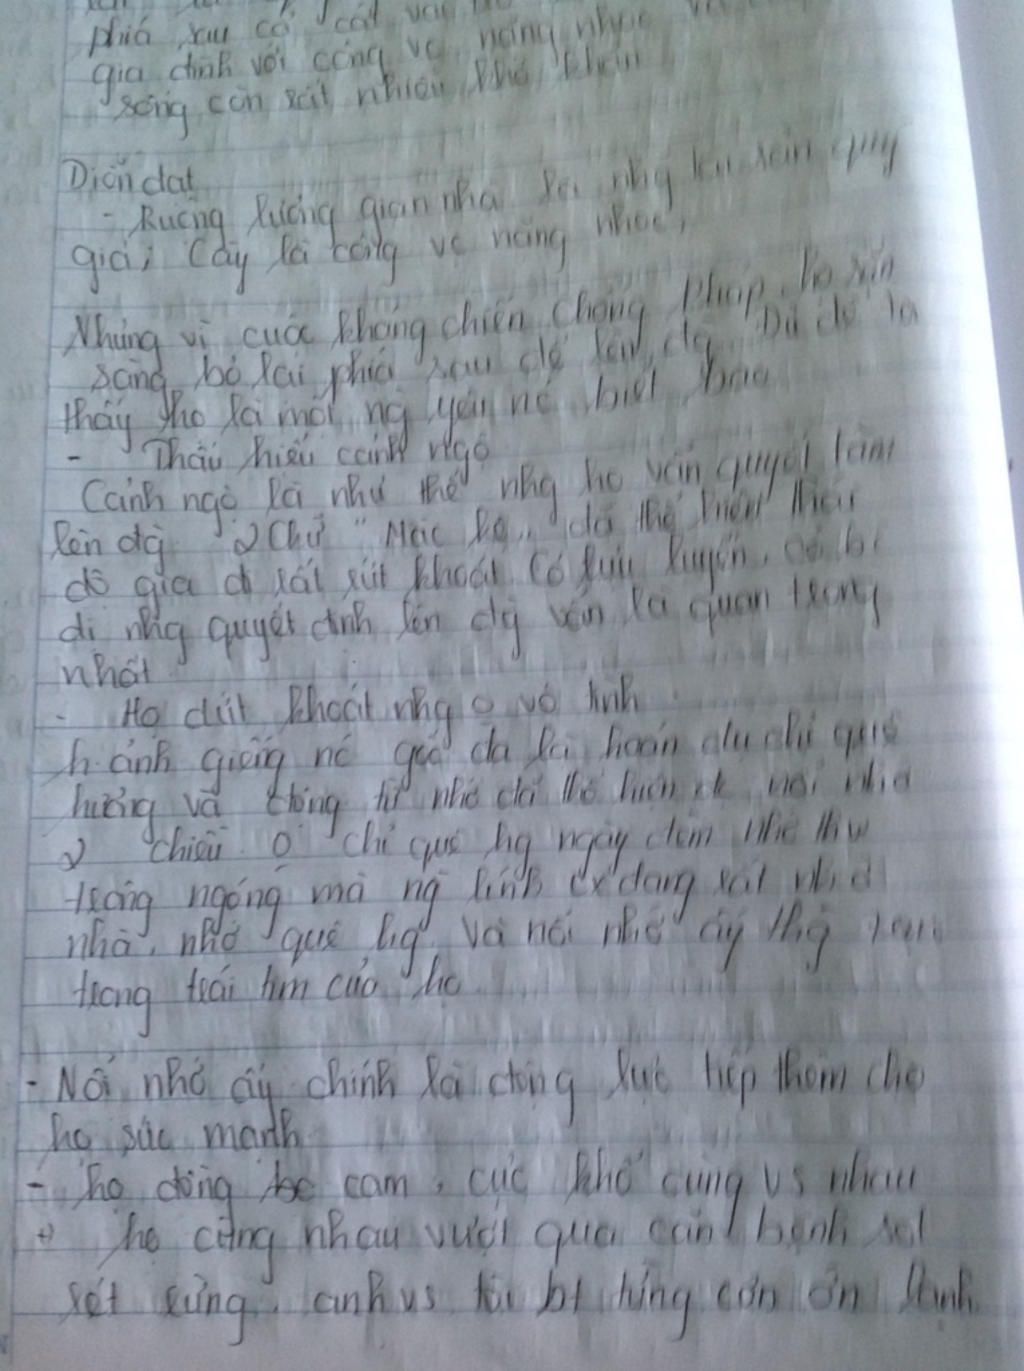 phía sau có
gia đình với công vc nặng nhọc
sống còn rất nhiều khó khăn
Diễn đạt
- Ruộng nương gian nhà là nhg tài sản quý
giá; Cày là công vc nặng nhọc,
Nhưng vì cuộc kháng chiến chống Pháp họ sẵn
sàng bỏ lại phía sau để lên đg. Từ đó ta
thấy họ là một ng yêu nc biết bao
- Thấu hiểu cảnh ngộ
Cảnh ngộ là như thế nhg họ vẫn quyết tâm
lên đg. 2 Chữ "Mặc kệ" đã thể hiện
độ gia đi rất rứt khoát Có lưu luyến,
đi nhg quyết định lên đg vẫn là quan trọng
nhất
- Họ dứt khoát nhg o vô tình
h.ảnh giếng nc gốc đa là hoán dụ chỉ quê
hương và động từ nhớ đã thể hiện nỗi nhớ
2 chiều. O chỉ quê hg ngày đêm nhớ thw
trông ngóng mà ng lính cx đang rất nhớ
nhà, nhớ quê hg. Và nỗi nhớ ấy
trong trái tim của họ
- Nỗi nhớ ấy chính là động lực tiếp thêm cho
họ sức mạnh
- họ đồng cam, cực khổ cùng vs nhau
+) họ cùng nhau vượt qua căn bệnh sốt
rét rừng. anh vs tôi bt từng cơn ớn lạnh